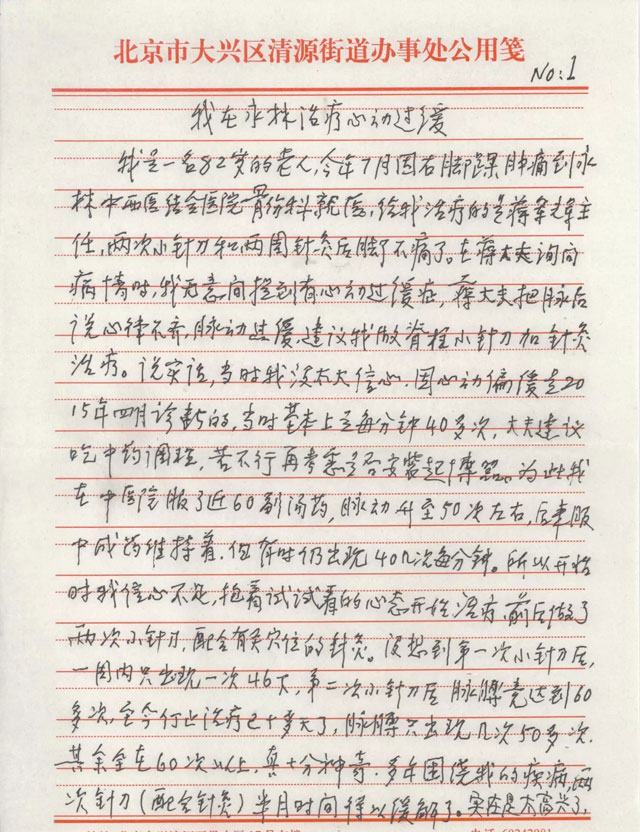 北京市大兴区清源街道办事处公用笺
No:1
我在永林治疗心动过缓
我是一名82岁的老人,今年7月因右脚踝肿痛到永
林中西医结合医院骨伤科就医,给我治疗的是蒋主
任,两次小针刀和两周针灸后脚了不痛了。在蒋大夫询问
病情时,我无意间提到有心动过缓症,蒋大夫把脉后
说心律不齐,脉动过缓,建议我做脊柱小针刀加针灸
治疗。说实话,当时我没太大信心.因心动偏缓是20
15年四月诊断的,当时基本上是每分钟40多次,大夫建议
吃中药调理,若不行再考虑是否安装起搏器。为此我
在中医院服了近60副汤药,脉动升至50次左右,后来服
中成药维持着.但有时仍出现40几次每分钟。所以开始
时我信心不足,抱着试试看的心态开始治疗.前后做了
两次小针刀,配合有关穴位的针灸。没想到第一次小针刀后,
一周内只出现一次46次,第二次小针刀后脉搏竟达到60
多次,至今停止治疗已十多天了,脉搏只出现几次50多次.
其余全在60次以上,真十分神奇.多年困绕我的疾病,两
次针刀(配合针灸)半月时间得以缓解了。实在是太高兴了,